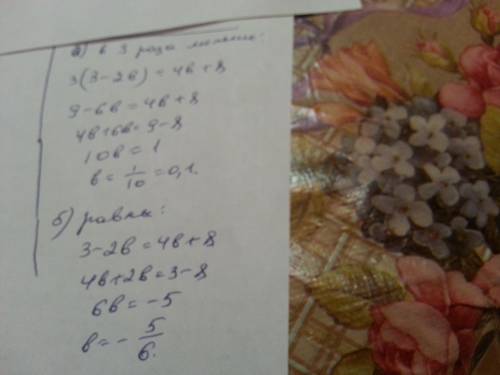 а) в 3 раза меньше:
3(3-2в) = 4в+8
9-6в = 4в+8
4в+6в = 9-8
10в = 1
в = 1/10 = 0,1.
б) равны:
3-2в = 4в+8
4в+2в = 3-8
6в = -5
в = - 5/6.